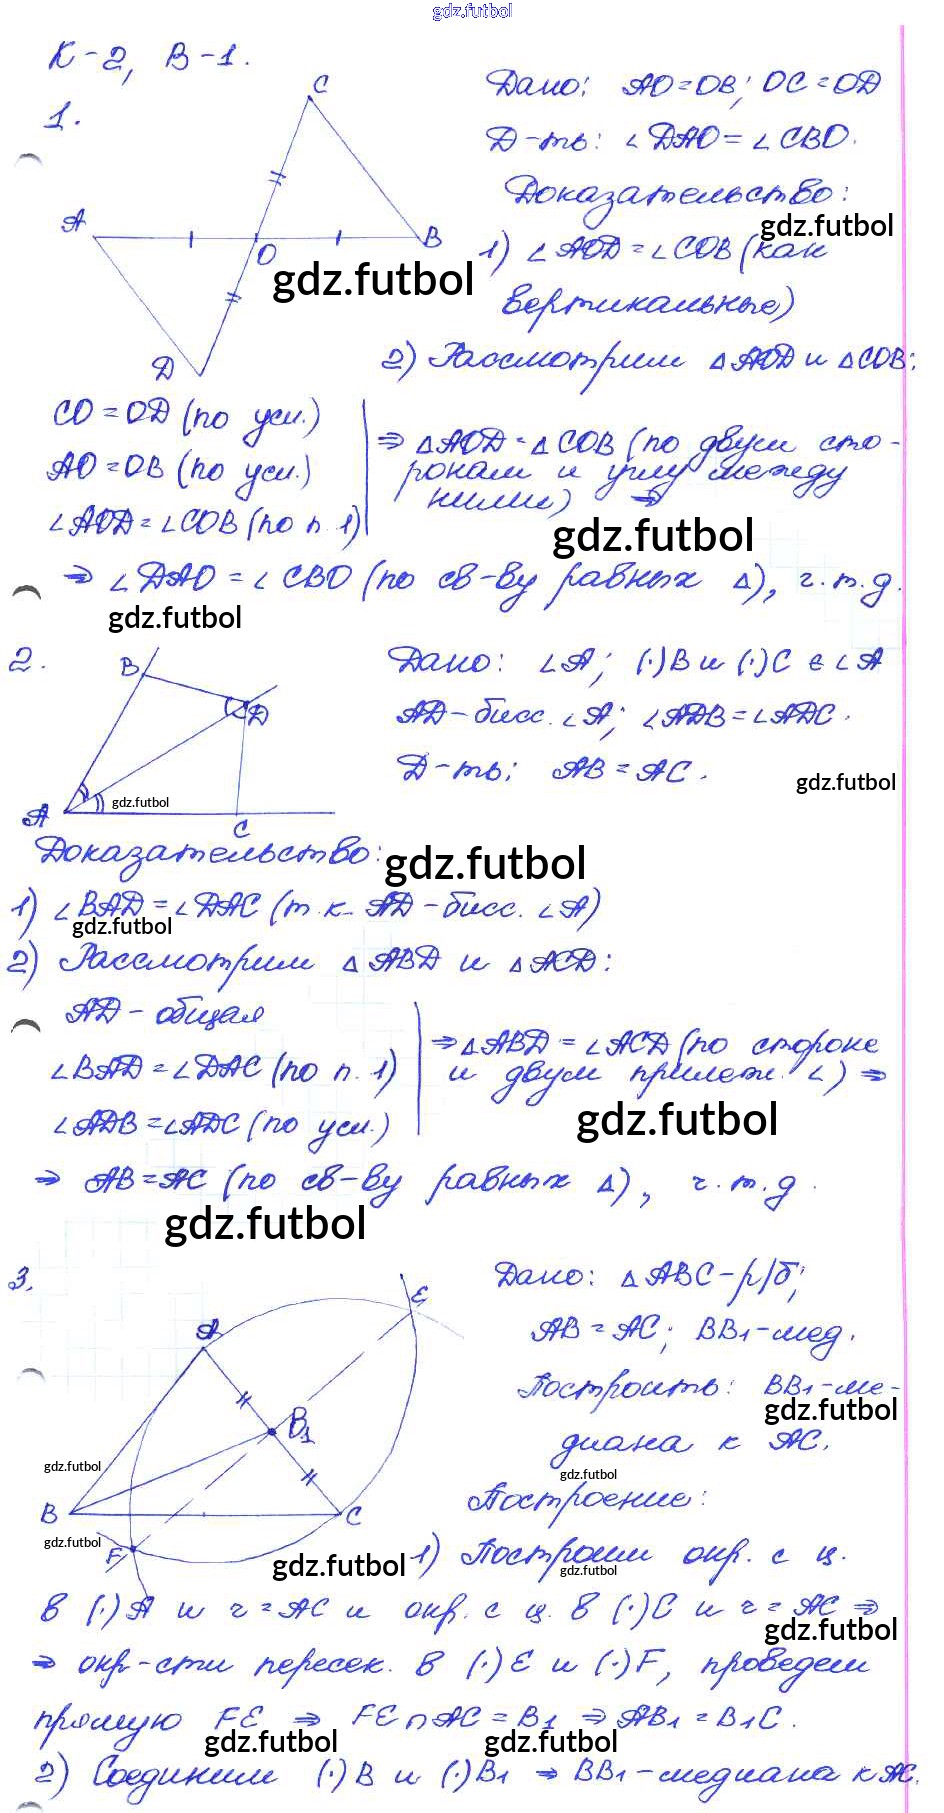 gdz.futbol
К-2, В-1.
1.
C
A
O
B
D
Дано: AO=OB; OC=OD
Д-ть: ∠DAO=∠CBO.
Доказательство:
gdz.futbol
1) ∠AOD=∠COB (как
вертикальные)
gdz.futbol
2) Рассмотрим △AOD и △COB:
CO=OD (по усл.)
AO=OB (по усл.)
∠AOD=∠COB (по п.1)
⇒ △AOD=△COB (по двум сто-
ронам и углу между
ними) ⇒
gdz.futbol
⇒ ∠DAO=∠CBO (по св-ву равных △), ч.т.д.
gdz.futbol
2.
B
D
A
C
gdz.futbol
Дано: ∠A; (·)B и (·)C ∈ ∠A
AD-бисс. ∠A; ∠ADB=∠ADC.
Д-ть: AB=AC.
gdz.futbol
Доказательство:
gdz.futbol
1) ∠BAD=∠DAC (т.к. AD-бисс. ∠A)
gdz.futbol
2) Рассмотрим △ABD и △ACD:
AD-общая
∠BAD=∠DAC (по п.1)
∠ADB=∠ADC (по усл.)
⇒ △ABD=∠ACD (по стороне
и двум прилеж. ∠) ⇒
gdz.futbol
⇒ AB=AC (по св-ву равных △), ч.т.д.
gdz.futbol
3.
E
A
B1
B
C
F
gdz.futbol
gdz.futbol
Дано: △ABC-р/б;
AB=AC; BB1-мед.
Построить: BB1-ме-
gdz.futbol
диана к AC.
gdz.futbol
Построение:
gdz.futbol
1) Построим окр. с ц.
gdz.futbol
в (·)A и r=AC и окр. с ц. в (·)C и r=AC ⇒
gdz.futbol
⇒ окр-сти пересек. в (·)E и (·)F, проведем
прямую FE ⇒ FE∩AC=B1 ⇒ AB1=B1C.
gdz.futbol gdz.futbol
2) Соединим (·)B и (·)B1 ⇒ BB1-медиана к AC.